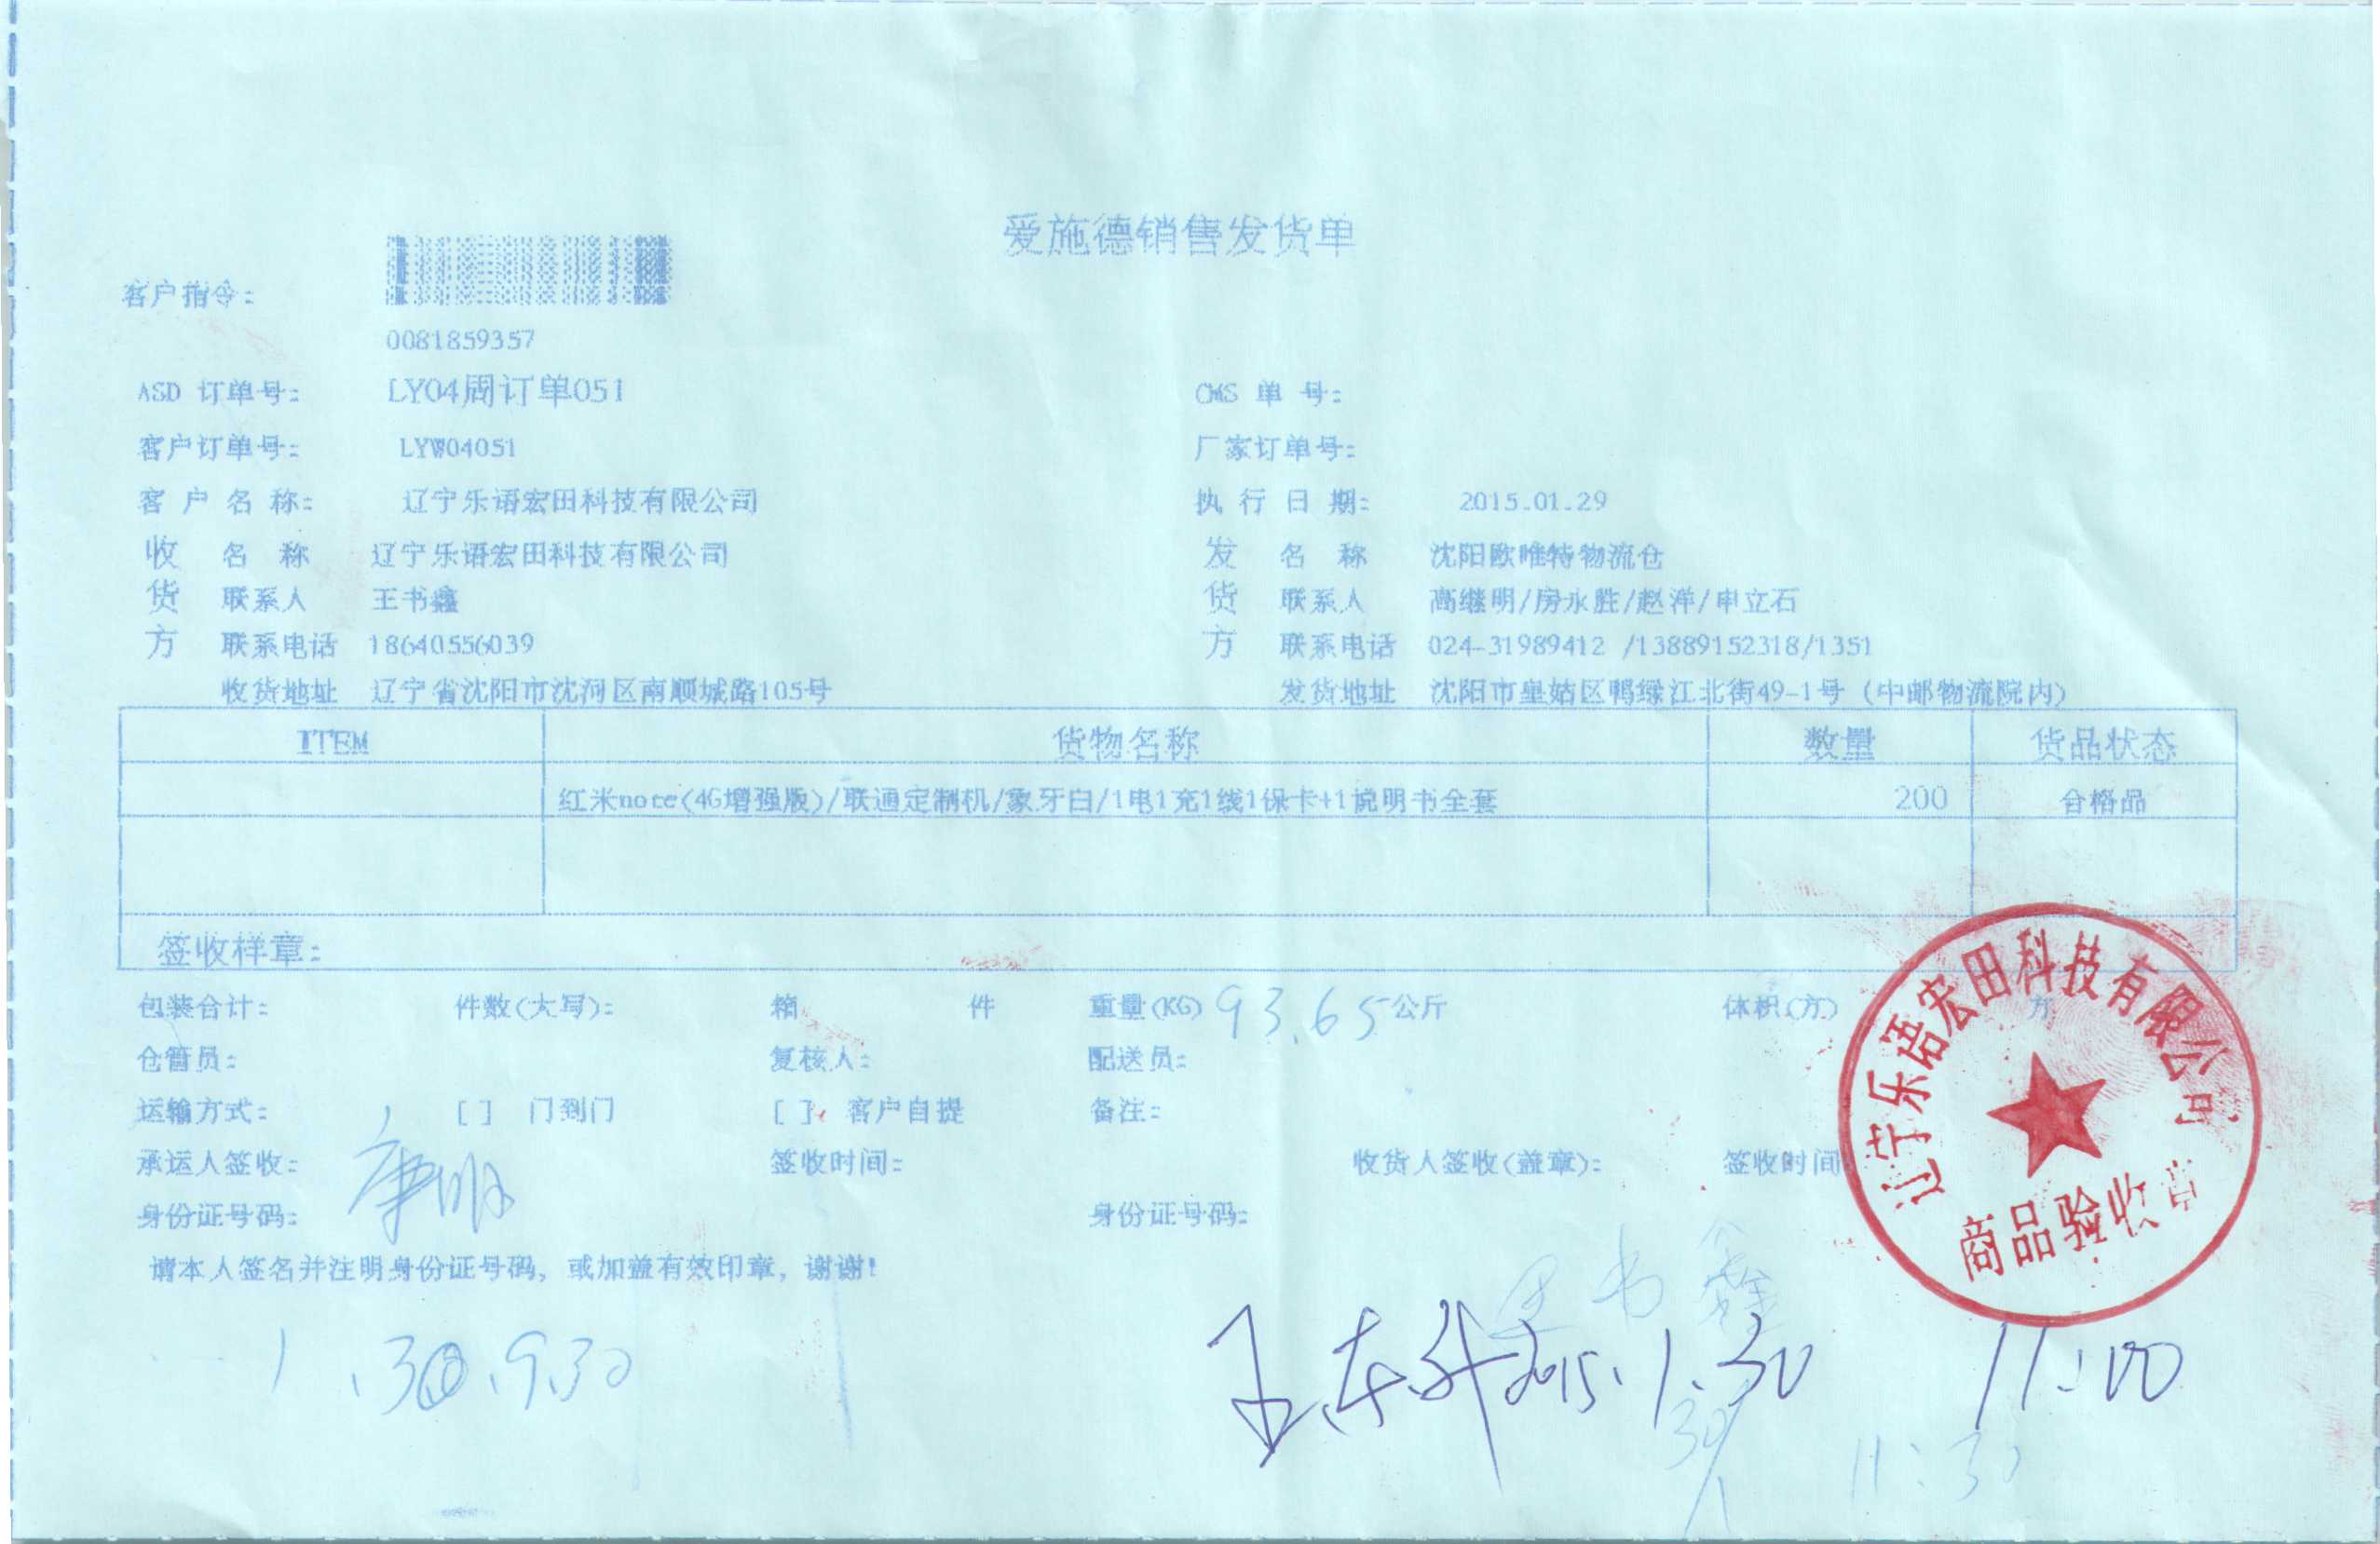 爱施德销售发货单
客户指令:
0081859357
ASD 订单号: LY04周订单051 CMS 单 号:
客户订单号: LYW04051 厂家订单号:
客 户 名 称: 辽宁乐语宏田科技有限公司 执 行 日 期: 2015.01.29
收 名 称 辽宁乐语宏田科技有限公司 发 名 称 沈阳欧唯特物流仓
货 联系人 王书鑫 货 联系人 高继明/房永胜/赵洋/申立石
方 联系电话 18640556039 方 联系电话 024-31989412 /13889152318/1351
收货地址 辽宁省沈阳市沈河区南顺城路105号 发货地址 沈阳市皇姑区鸭绿江北街49-1号 (中邮物流院内)
ITEM 货物名称 数量 货品状态
红米note(4G增强版)/联通定制机/象牙白/1电1充1线1保卡+1说明书全套 200 合格品
签收样章:
包装合计: 件数(大写): 箱 件 重量(KG) 93.65 公斤 体积(方) 方
仓管员: 复核人: 配送员:
运输方式: [ ] 门到门 [ ] 客户自提 备注:
承运人签收: 签收时间: 收货人签收(盖章): 签收时间
身份证号码: 身份证号码:
请本人签名并注明身份证号码, 或加盖有效印章, 谢谢!
辽宁乐语宏田科技有限公司
商品验收章
王书鑫
1.30.9.30
2015.1.30 11:00
30/1 11:30